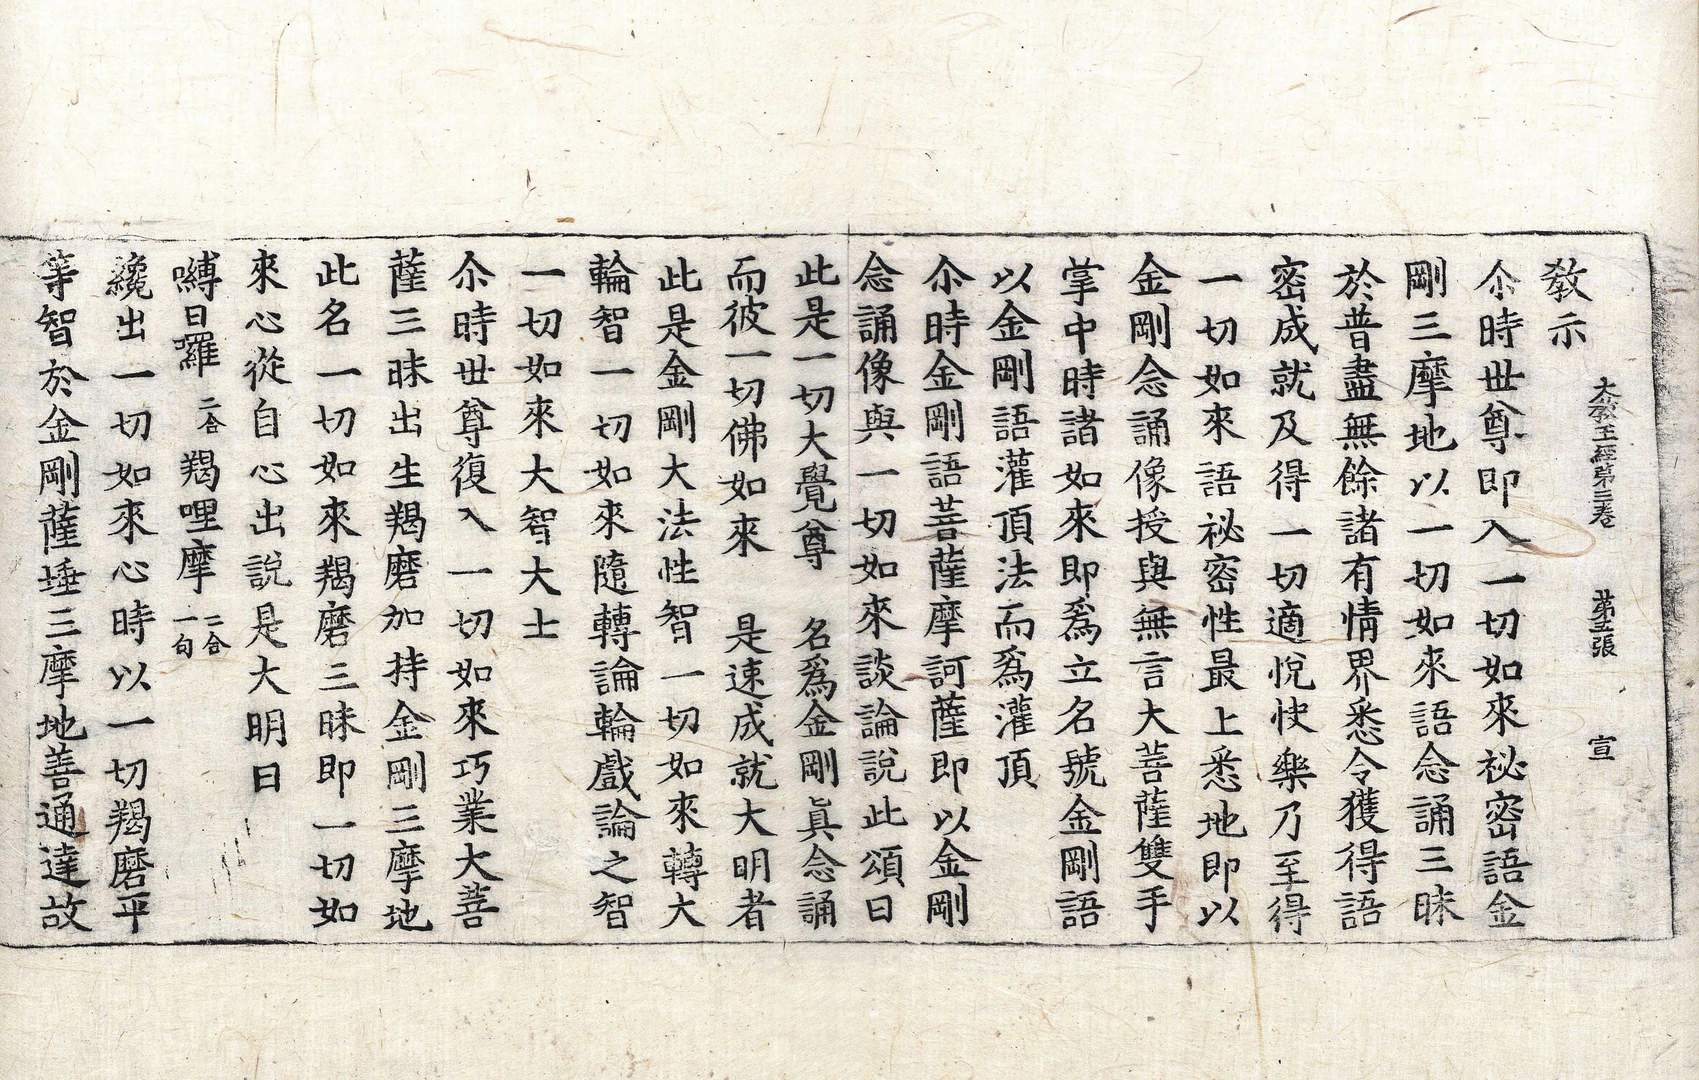 大教王經第三卷 第五張 宣
教示
尒時世尊即入一切如來祕密語金
剛三摩地以一切如來語念誦三昧
於普盡無餘諸有情界悉令獲得語
密成就及得一切適悅快樂乃至得
一切如來語祕密性最上悉地即以
金剛念誦像授與無言大菩薩雙手
掌中時諸如來即爲立名號金剛語
以金剛語灌頂法而爲灌頂
尒時金剛語菩薩摩訶薩即以金剛
念誦像與一切如來談論說此頌曰
此是一切大覺尊 名爲金剛眞念誦
而彼一切佛如來 是速成就大明者
此是金剛大法性智一切如來轉大
輪智一切如來隨轉論輪戲論之智
一切如來大智大士
尒時世尊復入一切如來巧業大菩
薩三昧出生羯磨加持金剛三摩地
此名一切如來羯磨三昧即一切如
來心從自心出說是大明曰
嚩日囉二合羯哩摩二合一句
纔出一切如來心時以一切羯磨平
等智於金剛薩埵三摩地善通達故